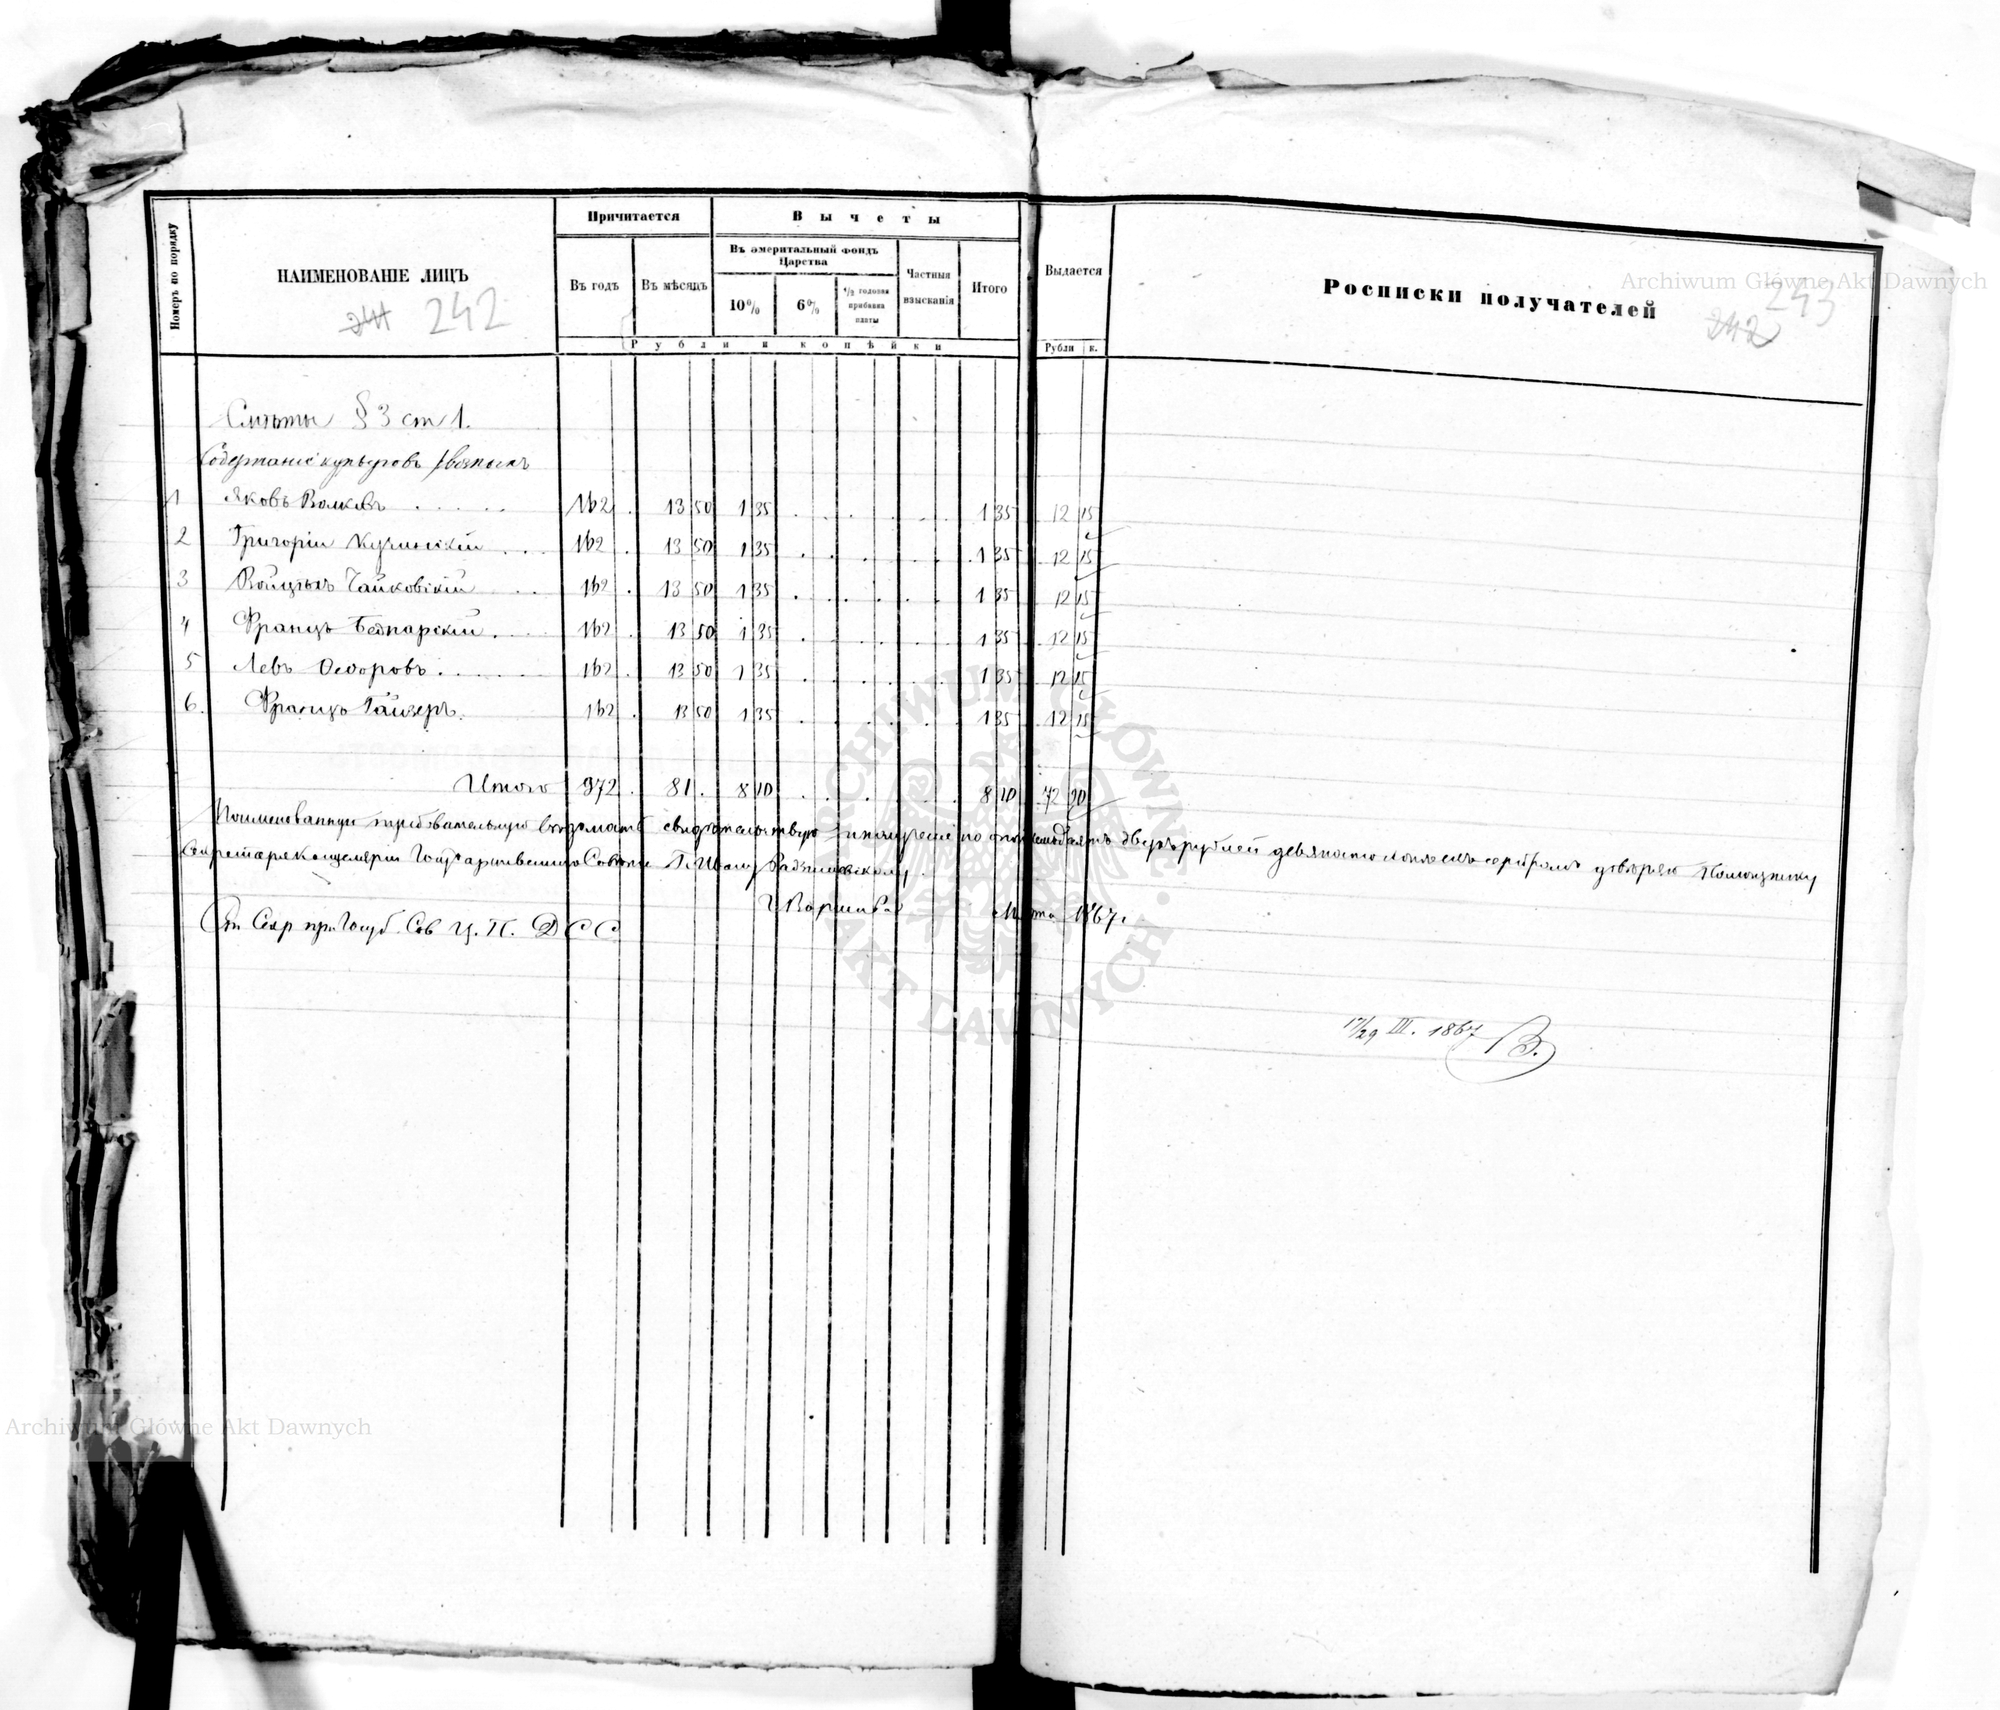 Номеръ по порядку
НАИМЕНОВАНІЕ ЛИЦЪ
241 242
Причитается
Въ годъ
Въ мѣсяцъ
Вычеты
Въ эмеритальный фондъ Царства
10%
6%
1/2 годовая прибавка платы
Частныя взысканія
Итого
Рубли и копѣйки
Выдается
Рубли к.
Росписки получателей
242 243
Archiwum Główne Akt Dawnych
Смѣты § 3 ст 1.
Содержаніе курьеровъ
1 Яковъ Волковъ 162 . 13 50 1 35 . . . . 1 35 12 15
2 Григорій Кучинскій 162 . 13 50 1 35 . . . . 1 35 12 15
3 Войцѣхъ Чайковскій 162 . 13 50 1 35 . . . . 1 35 12 15
4 Францъ Беднарскій 162 . 13 50 1 35 . . . . 1 35 12 15
5 Левъ Ѳедоровъ 162 . 13 50 1 35 . . . . 1 35 12 15
6. Францъ Гайзеръ. 162 . 13 50 1 35 . . . . 1 35 12 15
Итого 972 . 81 . 8 10 . . . . 8 10 72 90
Поименованную требовательную вѣдомость свидѣтельствую получение по оной семьдесятъ двухъ рублей девяносто копѣекъ серебромъ довѣряю Помощнику
Секретаря Канцеляріи Государственнаго Совѣта Г. Ивану
г. Варшава Марта 1867 г.
Ст Секр при Госуд. Сов Ц. П. Д С С
17/29 III. 1867 В.
ARCHIWUM GŁÓWNE AKT DAWNYCH
Archiwum Główne Akt Dawnych